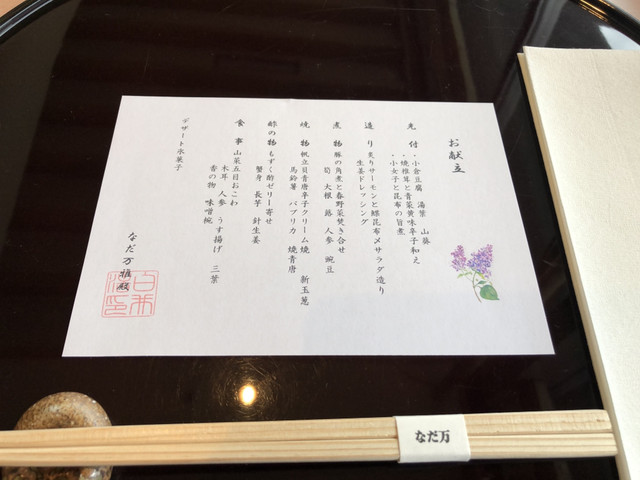 お献立
先付・小倉豆腐 湯葉 山葵
・焼椎茸と青菜黄味辛子和え
・小女子と昆布の旨煮
造り 炙りサーモンと鰹昆布〆サラダ造り
生姜ドレッシング
煮物 豚の角煮と春野菜焚き合せ
筍 大根 蕗 人参 豌豆
焼物 帆立貝青唐辛子クリーム焼 新玉葱
馬鈴薯 パプリカ 焼青唐
酢の物 もずく酢ゼリー寄せ
蟹身 長芋 針生姜
食事 山菜五目おこわ
木耳 人参 うす揚げ 三葉
香の物 味噌椀
デザート 氷菓子
なだ万
なだ万